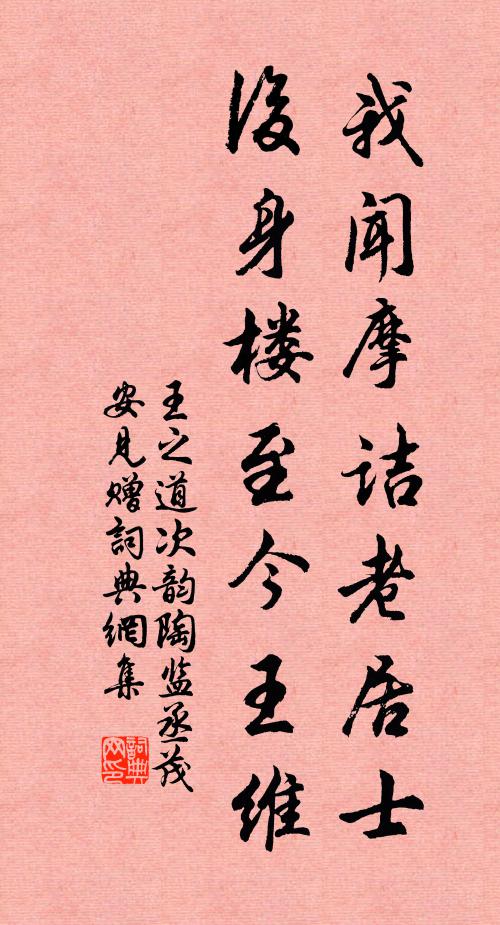 我闻摩诘老居士
後身楼至今王维
王之道次韵陶监丞茂
安見赠詞典網集
詞典
网印